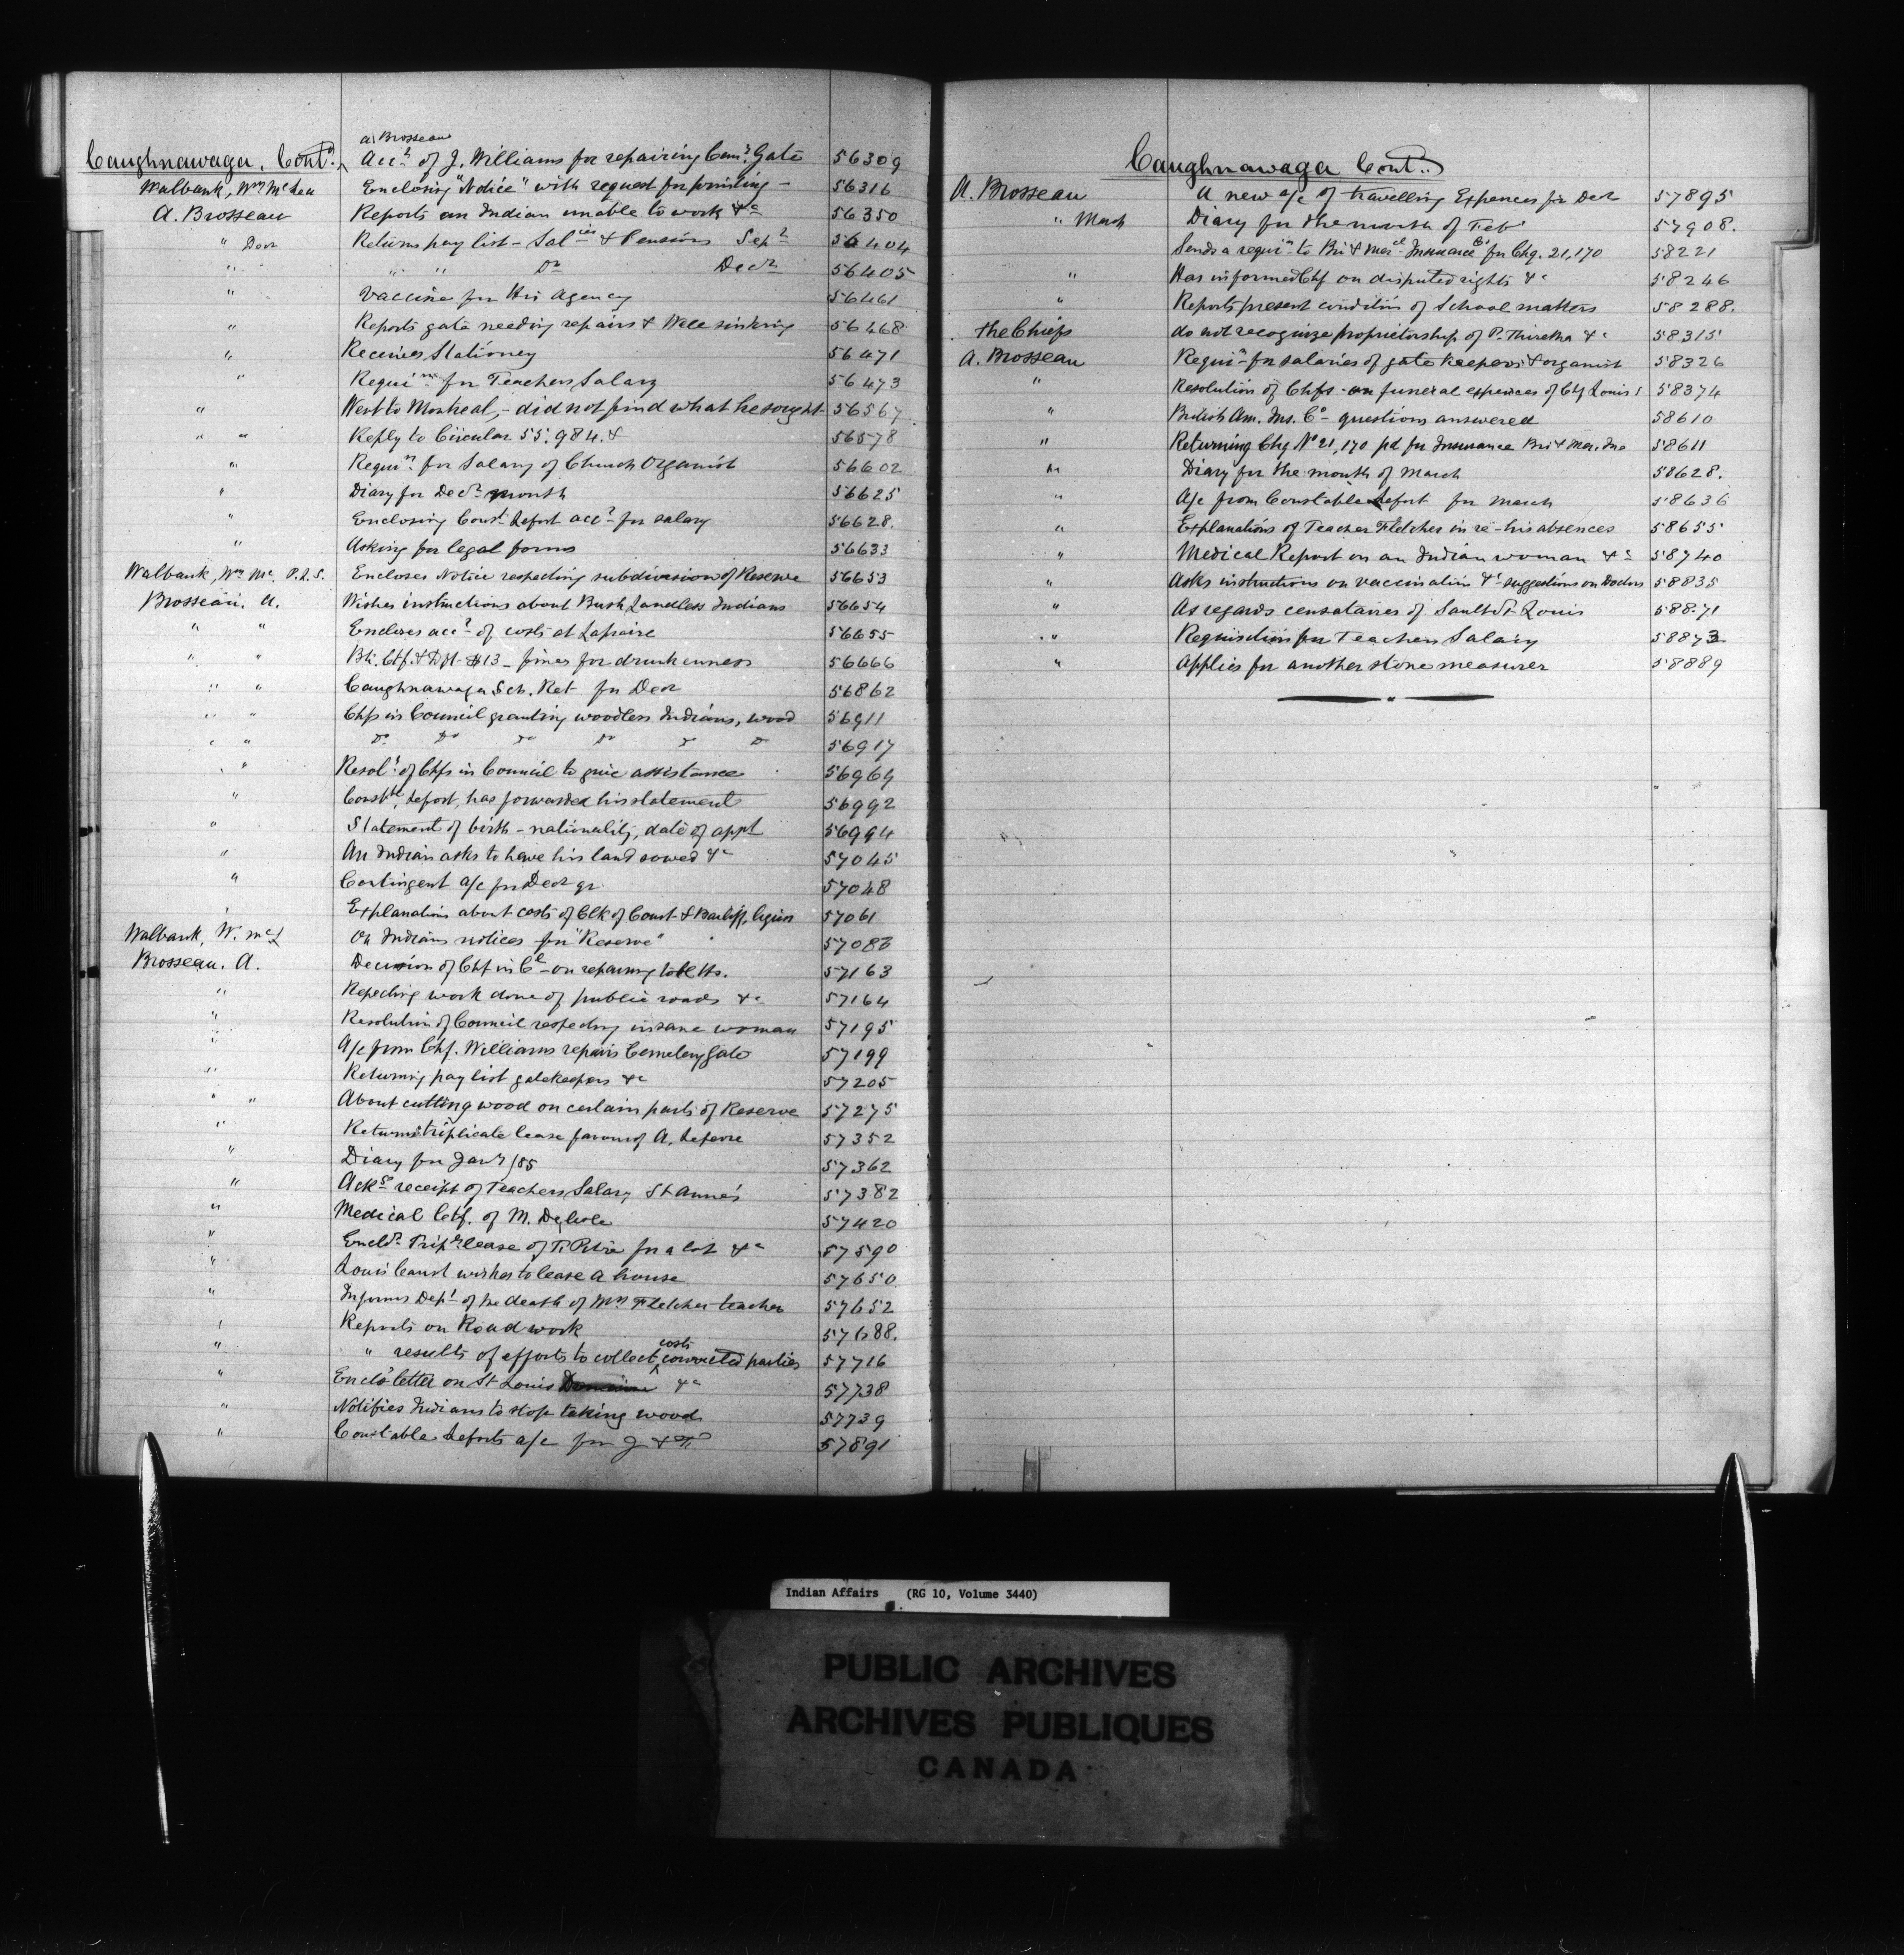 Caughnawaga. Cont.
A. Brosseau
Acct of J. Williams for repairing Cemy Gate 56309
Walbank, Wm McLea Enclosing "Notice" with request for printing - 56316
A. Brosseau Reports an Indian unable to work &c 56350
" Decr Returns pay list - Salies & Pensions Sepr 56404
" " " Do Decr 56405
" Vaccine for his Agency 56461
" Reports gate needing repairs & Well sinking 56468
" Receives Stationery 56471
" Requin for Teachers Salary 56473
" Went to Montreal, - did not find what he sought 56567
" " Reply to Circular 55.984. & 56578
" Requin for Salary of Church Organist 56602
" Diary for Decr month 56625
" Enclosing Const Lefort acct for salary 56628.
" Asking for legal forms 56633
Walbank, Wm Mc. P.L.S. Encloses Notice respecting subdivision of Reserve 56653
Brosseau. A. Wishes instructions about Bush Landless Indians 56654
" " Encloses acct of costs at Laprairie 56655
" " Bk. Ctf. & Dft $13 - fines for drunkenness 56666
" " Caughnawaga Sch. Ret for Decr 56862
" " Chfs in Council granting woodless Indians, wood 56911
" " Do Do Do Do Do Do 56917
" Resolt of Chfs in Council to give assistance 56969
" Constble Lefort, has forwarded his statement 56992
" Statement of birth - nationality, date of appt 56994
" An Indian asks to have his land sowed &c 57045
" Contingent a/c for Decr qr 57048
" Explanations about costs of Clk of Court & Bailiff, 57061
Walbank, W. McL On Indians notices for "Reserve" 57083
Brosseau. A. Decision of Chf in Cl - on repairing toll Ho. 57163
" Respecting work done of public roads &c 57164
" Resolution of Council respecting insane woman 57195
" A/c from Chf. Williams repairs Cemetery Gate 57199
" Returning pay list gatekeepers &c 57205
" " About cutting wood on certain parts of Reserve 57275
" Returns triplicate lease favour of A. Lefevre 57352
" Diary for Jany /85 57362
" Ackge receipt of Teachers Salary St Anne's 57382
" Medical Ctf. of M. Delisle 57420
" Encld Tripte lease of for a lot &c 57590
" Louis Canst wishes to lease a house 57650
" Informs Dept of the death of Mrs Fletcher teacher 57652
" Reports on Road work 57688.
" " results of efforts to collect costs convicted parties 57716
" Encls letter on St Louis &c 57738
" Notifies Indians to stop taking wood 57739
" Constable Leforts a/c for J & F 57891
Caughnawaga Cont.
A. Brosseau A new a/c of travelling Expences for Decr 57895
" March Diary for the month of Feby 57908.
Sends a requin to Bri & Merl Insurance Co for Chq. 21,170 58221
" Has informed Chf on disputed rights &c 58246
" Reports present condition of School matters 58288.
The Chiefs do not recognize proprietorship of P. &c 58315
A. Brosseau Requin for salaries of gate keepers & organist 58326
" Resolution of Chfs - on funeral expences of Chf Louis 58374
" British Am. Ins. Co - questions answered 58610
" Returning Chq No 21,170 pd for Insurance Bri & Mer. Ins 58611
" Diary for the month of March 58628.
" A/c from Constable Lefort for March 58636
" Explanations of Teacher Fletcher in re - his absences 58655
" Medical Report on an Indian woman &c 58740
" Asks instructions on vaccination & suggestions on Doctors 58835
" As regards censataires of Sault St Louis 58871
" Requisition for Teachers Salary 58873
" Applies for another stone measurer 58889
Indian Affairs (RG 10, Volume 3440)
PUBLIC ARCHIVES
ARCHIVES PUBLIQUES
CANADA